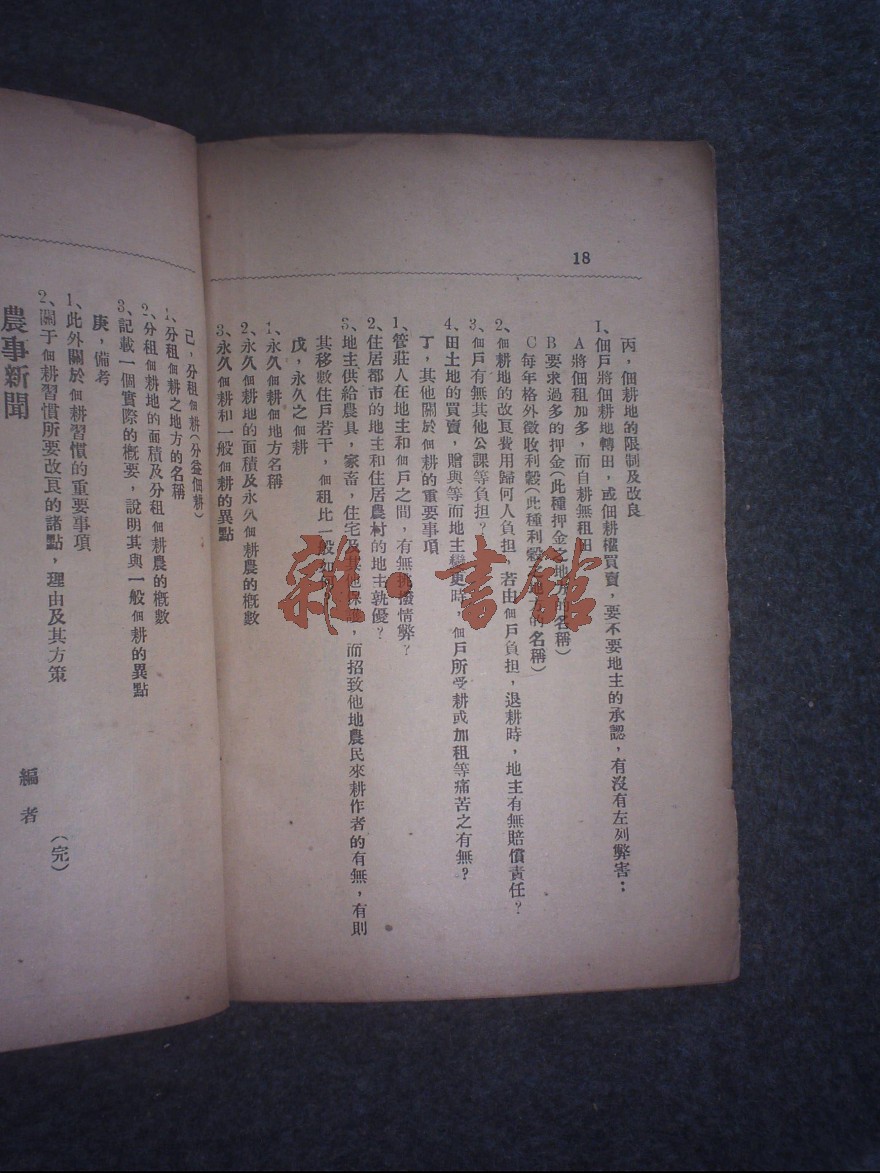 18
丙，佃耕地的限制及改良
1、佃戶將佃耕地轉田，或佃耕權買賣，要不要地主的承認，有沒有左列弊害：
A將佃租加多，而自耕無租田
B要求過多的押金（此種押金之地方的名稱）
C每年格外徵收利穀（此種利穀之地方的名稱）
2、佃耕地的改良費用歸何人負担，若由佃戶負担，退耕時，地主有無賠償責任？
3、佃戶有無其他公課等負担？
4、田土地的買賣，贈與等而地主變更時，佃戶所受耕或加租等痛苦之有無？
丁，其他關於佃耕的重要事項
1、管莊人在地主和佃戶之間，有無挑撥情弊？
2、住居都市的地主和住居農村的地主孰優？
3、地主供給農具，家畜，住宅及其他，而招致他地農民來耕作者的有無，有則
其移數住戶若干，佃租比一般如何
戊，永久之佃耕
1、永久佃耕佃地方名稱
2、永久佃耕地的面積及永久佃耕農的概數
3、永久佃耕和一般佃耕的異點
己，分租佃耕（分益佃耕）
1、分租佃耕之地方的名稱
2、分租佃耕地的面積及分租佃耕農的概數
3、記載一個實際的概要，說明其與一般佃耕的異點
庚，備考
1、此外關於佃耕習慣的重要事項
2、關于佃耕習慣所要改良的諸點，理由及其方策
（完）
農事新聞
編者
雜·書館